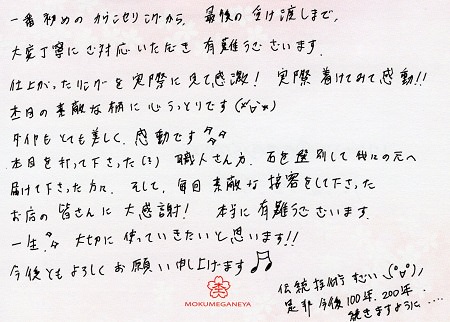 一番初めのカウンセリングから、最後の受け渡しまで、
大変丁寧にご対応いただき有難うございます。
仕上がったリングを実際に見て感激! 実際着けてみて感動!!
木目の素敵な柄に心うっとりです(*´∀`*)
ダイヤもとても美しく、感動です
木目を打って下さった(?)職人さん方、石を選別して我々の元へ
届けて下さった方々、そして、毎回素敵な接客をして下さった
お店の皆さんに大感謝! 本当に有難うございます。
一生 大切に使っていきたいと思います!!
今後ともよろしくお願い申し上げます♪
伝統技術すごい\(°∀°)/
是非今後100年、200年
続きますように....
MOKUMEGANEYA